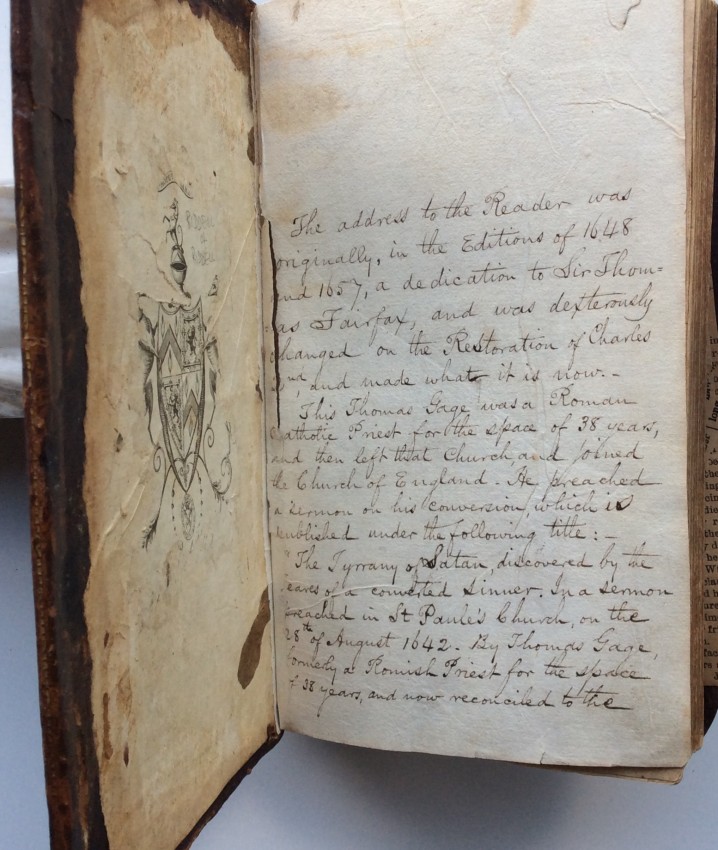 The address to the Reader was
originally, in the Editions of 1648
and 1657, a dedication to Sir Thom=
=as Fairfax, and was dexterously
changed on the Restoration of Charles
2nd, and made what it is now. -
This Thomas Gage, was a Roman
Catholic Priest for the space of 38 years,
and then left that Church, and joined
the Church of England - He preached
a Sermon on his conversion, which is
published under the following title: -
"The Tyrrany of Satan, discovered by the
teares of a converted Sinner. In a Sermon
preached in St Paule's Church, on the
28th of August 1642 - By Thomas Gage,
formerly a Romish Priest for the space
of 38 years, and now reconciled to the